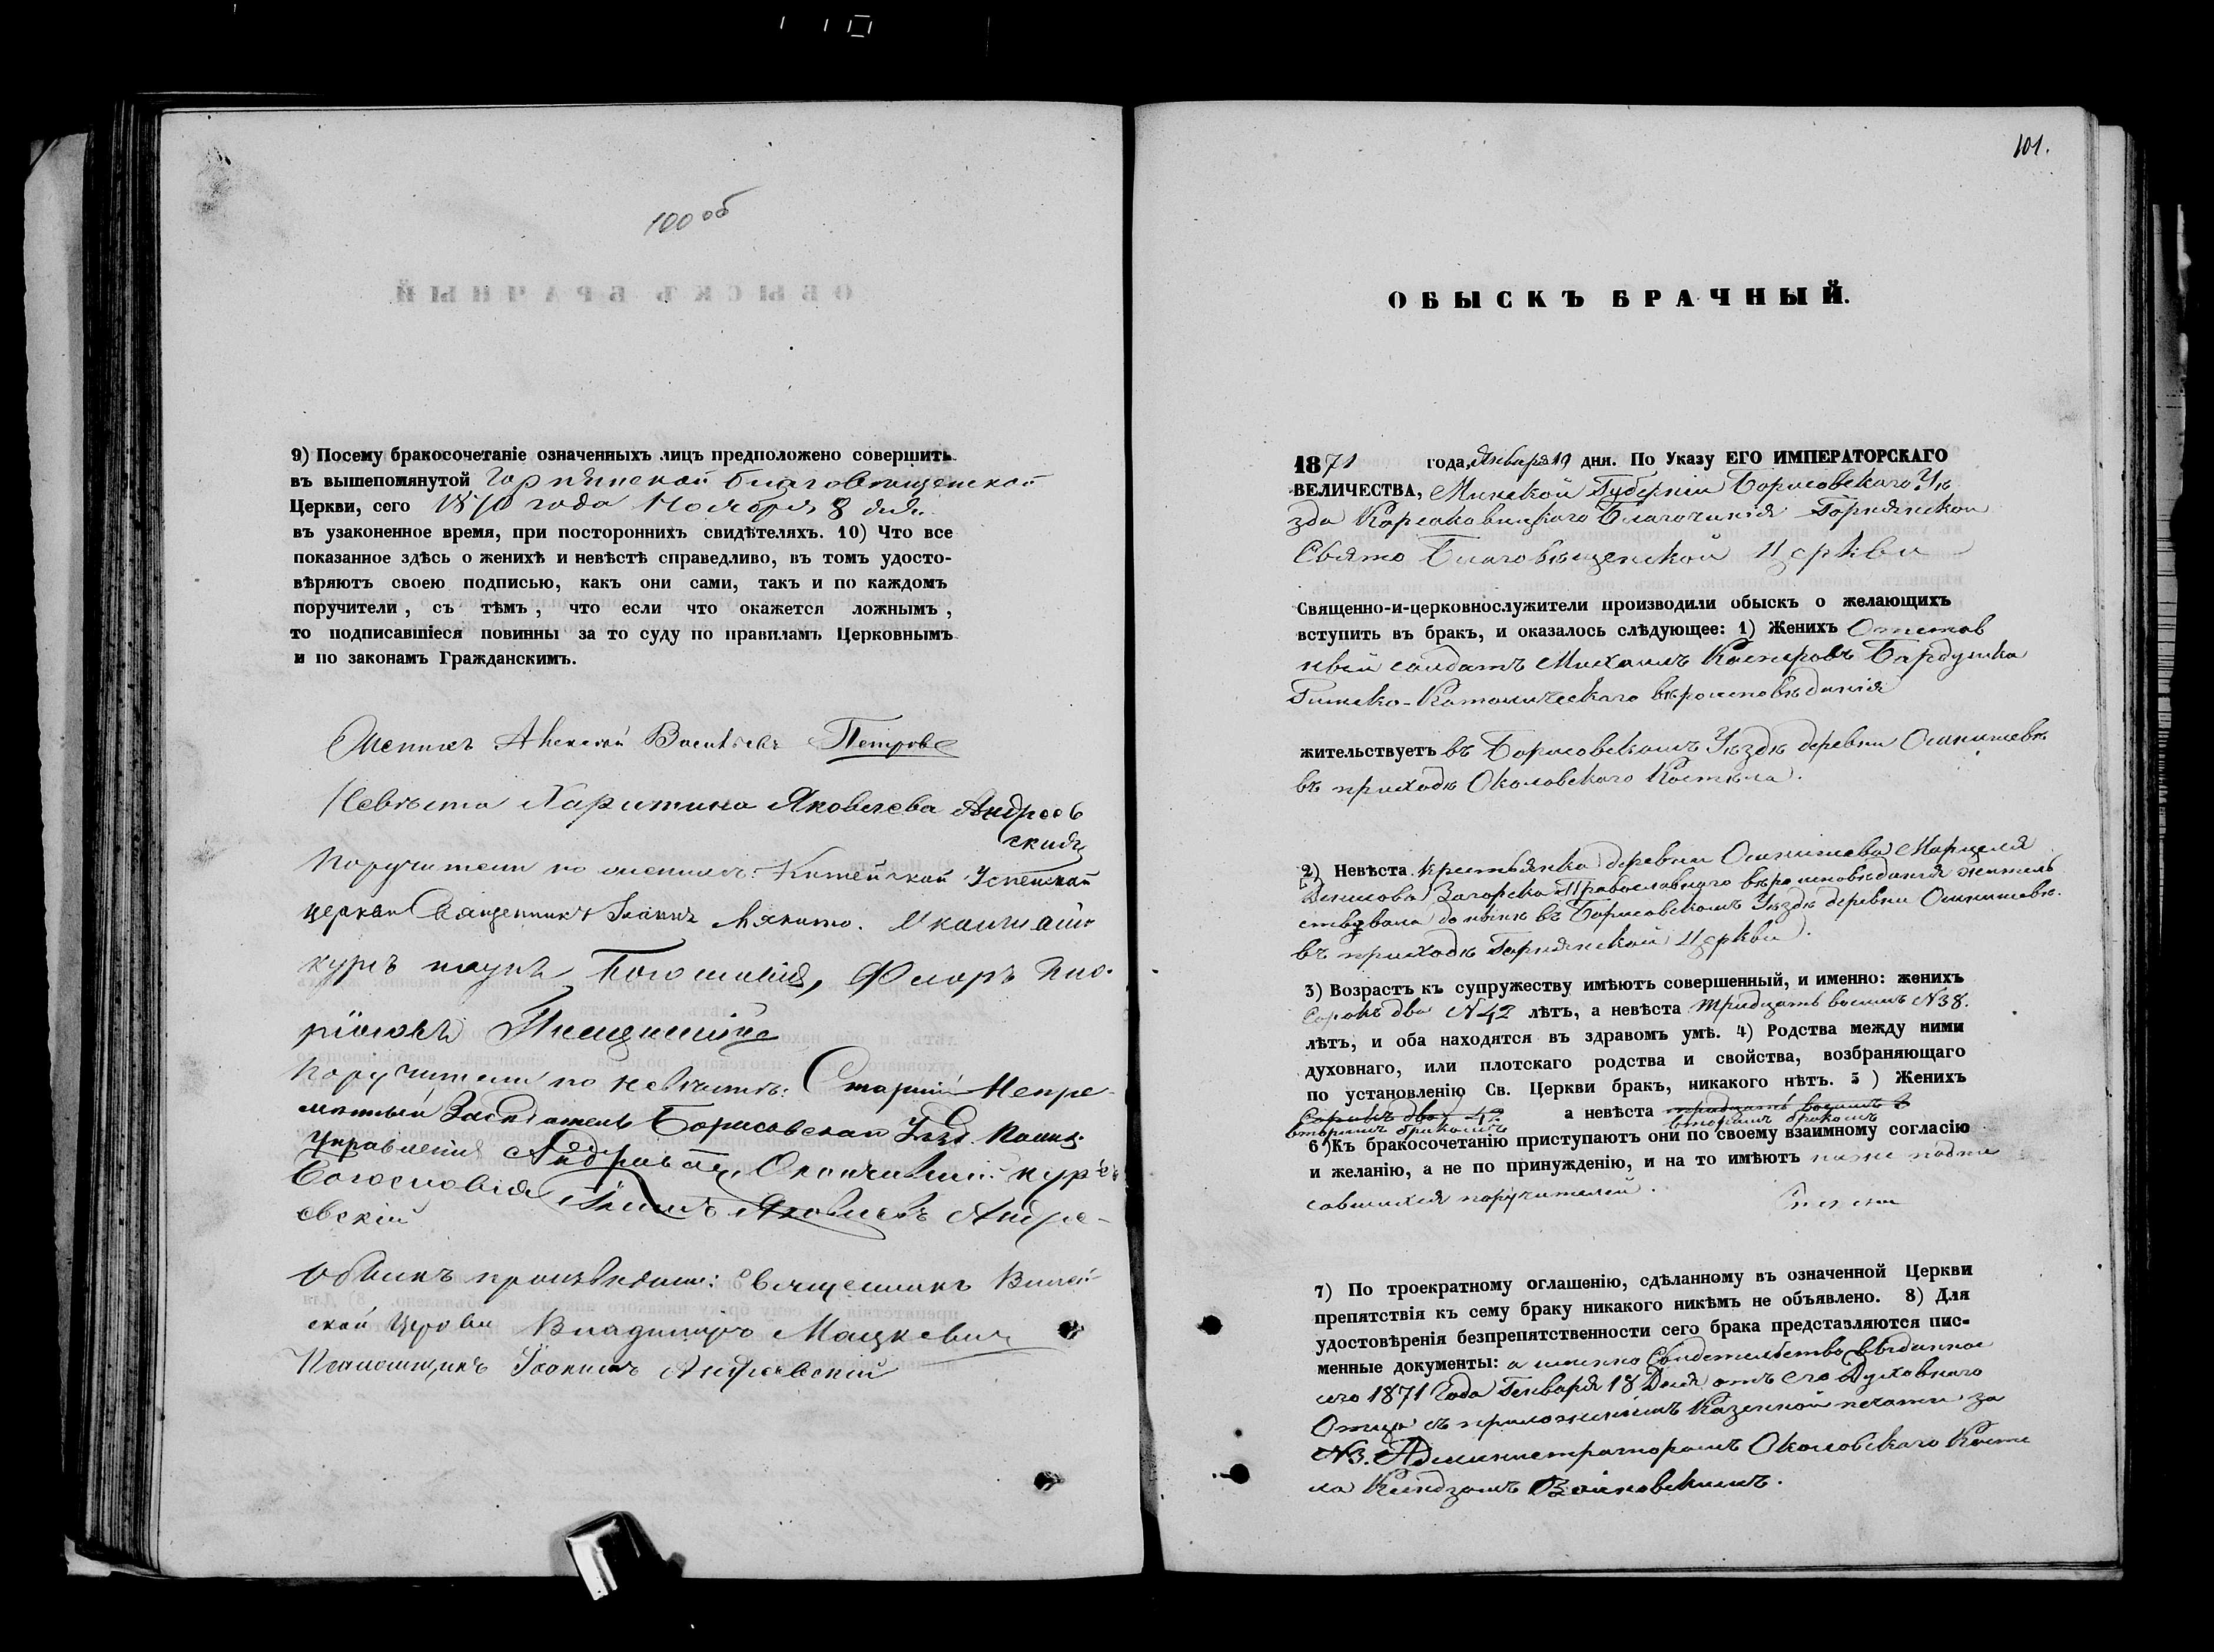 100 об
9) Посему бракосочетаніе означенныхъ лицъ предположено совершить
въ вышепомянутой Горнянской Благовѣщенской
Церкви, сего 1870 года Ноября 8 дня.
въ узаконенное время, при постороннихъ свидѣтеляхъ. 10) Что все
показанное здѣсь о женихѣ и невѣстѣ справедливо, въ томъ удосто-
вѣряютъ своею подписью, какъ они сами, такъ и по каждомъ
поручители, съ тѣмъ, что если что окажется ложнымъ,
то подписавшіеся повинны за то суду по правиламъ Церковнымъ
и по законамъ Гражданскимъ.
Женихъ Алексѣй Васильевъ Петровъ
Невѣста Харитина Яковлева Андреев
ская
Поручители по женихѣ: Успенской
церкви Священникъ Іоаннъ
курсъ наукъ Богословія, Флоръ
Поручители по невѣстѣ: Старшій Непре-
мѣнный Засѣдатель Борисовскаго Уѣзд. Полиц.
Управленія Окончившій курсъ
Богословія Яковлевъ Андре-
евскій
Обыскъ производили: Священникъ
ской Церкви Владиміръ Мацкевич
Псаломщикъ Іоаннъ Андреевскій
101.
ОБЫСКЪ БРАЧНЫЙ.
1871 года, Января 19 дня. По Указу ЕГО ИМПЕРАТОРСКАГО
ВЕЛИЧЕСТВА, Минской Губерніи Борисовскаго Уѣ
зда Корсаковицкаго Благочинія Горнянской
Свято Благовѣщенской Церкви
Священно-и-церковнослужители производили обыскъ о желающихъ
вступить въ брак, и оказалось слѣдующее: 1) Женихъ Отстав
ный солдатъ Михаилъ Касперовъ Бардушка
Римско-Католическаго вѣроисповѣданія
жительствуетъ въ Борисовскомъ Уѣздѣ деревни Осинишевѣ
въ приходѣ Околовскаго Костела.
2) Невѣста Крестьянка деревни Осинишева Марцеля
Денисова Загорска Православнаго вѣроисповѣданія житель
ствовала до нынѣ въ Борисовскомъ Уѣздѣ деревни Осинишевѣ.
въ приходѣ Горнянской Церкви.
3) Возрастъ къ супружеству имѣютъ совершенный, и именно: женихъ
Сорокъ два №42 лѣтъ, а невѣста тридцать восемь №38.
лѣтъ, и оба находятся въ здравомъ умѣ. 4) Родства между ними
духовнаго, или плотскаго родства и свойства, возбраняющаго
по установленію Св. Церкви брак, никакого нѣтъ. 5) Женихъ
Сорокъ два 42 а невѣста тридцать восемь
вторымъ бракомъ вторымъ бракомъ
6) Къ бракосочетанію приступаютъ они по своему взаимному согласію
и желанію, а не по принужденію, и на то имѣютъ ниже подпи
савшихся поручителей.
7) По троекратному оглашенію, сдѣланному въ означенной Церкви
препятствія къ сему браку никакого никѣмъ не объявлено. 8) Для
удостовѣренія безпрепятственности сего брака представляются пись-
менные документы: а именно Свидетельство выданное
сего 1871 Года Генваря 18 Дня отъ его Духовнаго
Отца съ приложеніемъ Казенной печати за
№3. Администраторомъ Околовскаго Косте
ла Ксендзомъ Войновскимъ.